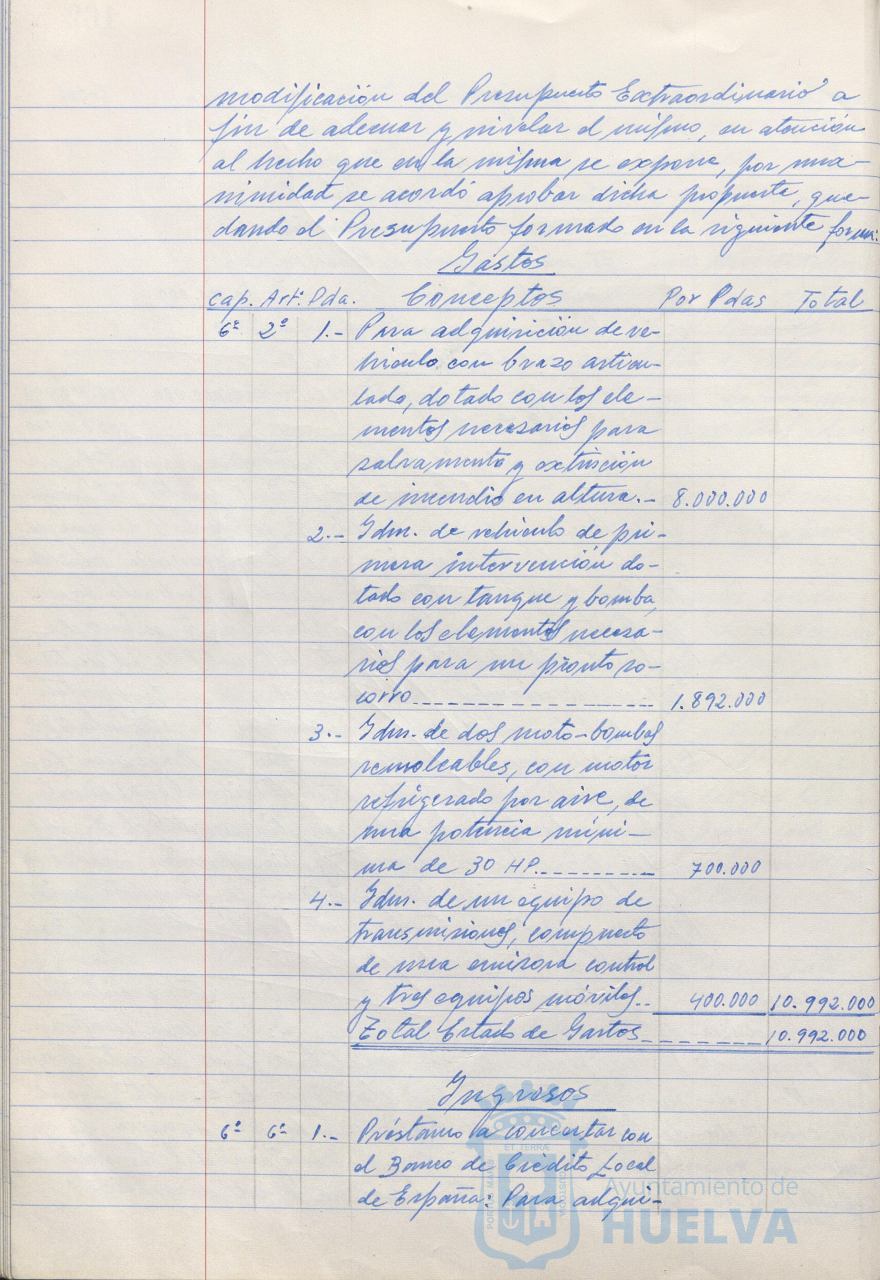 modificación del Presupuesto Extraordinario a
fin de adecuar y nivelar el mismo, en atención
al hecho que en la misma se expone, por una-
nimidad se acordó aprobar dicha propuesta, que-
dando el Presupuesto formado en la siguiente forma:
Gastos
Cap. Art. Pda. Conceptos Por Pdas Total
6º 2º 1.- Para adquisición de ve-
hículo con brazo articu-
lado, dotado con los ele-
mentos necesarios para
salvamento y extinción
de incendio en altura.- 8.000.000
2.- Idm. de vehículo de pri-
mera intervención do-
tado con tanque y bomba,
con los elementos necesa-
rios para un pronto so-
corro 1.892.000
3.- Idm. de dos moto-bombas
remolcables, con motor
refrigerado por aire, de
una potencia míni-
ma de 30 HP. 700.000
4.- Idm. de un equipo de
transmisiones, compuesto
de una emisora control
y tres equipos móviles.. 400.000 10.992.000
Total Estado de Gastos 10.992.000
Ingresos
6º 6º 1.- Préstamo a concertar con
el Banco de Crédito Local
de España: Para adqui-
Ayuntamiento de
HUELVA